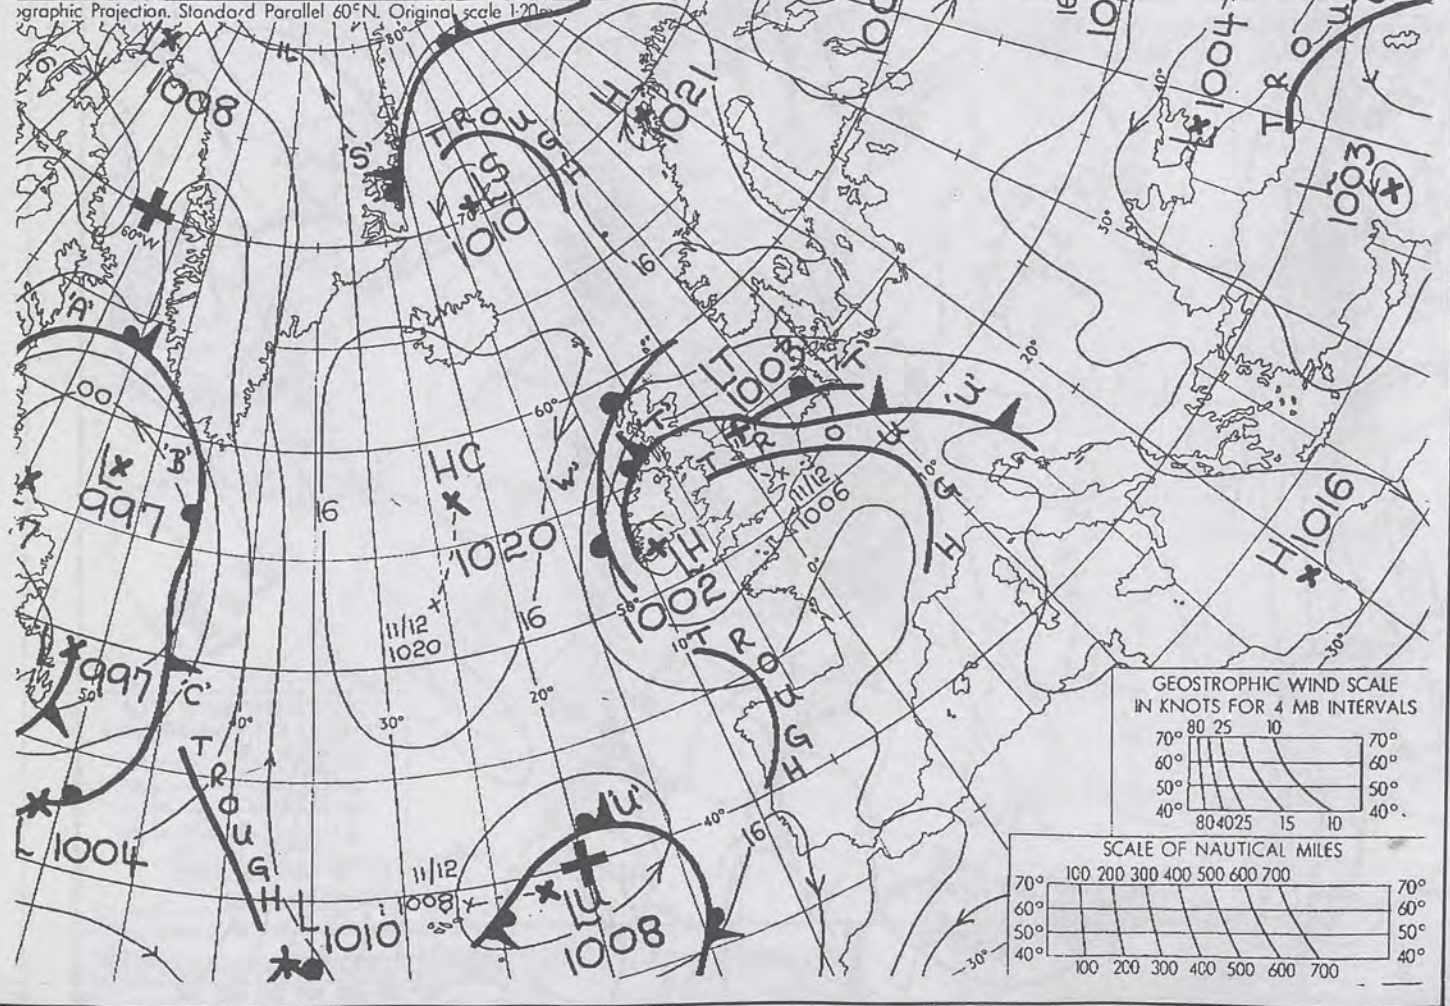 ographic Projection. Standard Parallel 60°N. Original scale 1:20m
80°
1008
'S'
TROUGH
LS
70°
1010
H
1021
1004
TROU
40°
30°
L
1003
60°W
16
'A'
00
L
997
'B'
HC
1020
16
60°
'W'
LT
1005
'T'
'T'
'U'
20°
TROUGH
11/12
1006
0°
0°
LH
1002
50°
10°
TROUGH
H 1016
30°
11/12
1020
16
20°
30°
997
50°
'C'
TROUGH
L 1004
L 1010
11/12
1008
'U'
LU
1008
40°
16
30°
GEOSTROPHIC WIND SCALE
IN KNOTS FOR 4 MB INTERVALS
80 25 10
70° 70°
60° 60°
50° 50°
40° 40°
80 40 25 15 10
SCALE OF NAUTICAL MILES
100 200 300 400 500 600 700
70° 70°
60° 60°
50° 50°
40° 40°
100 200 300 400 500 600 700